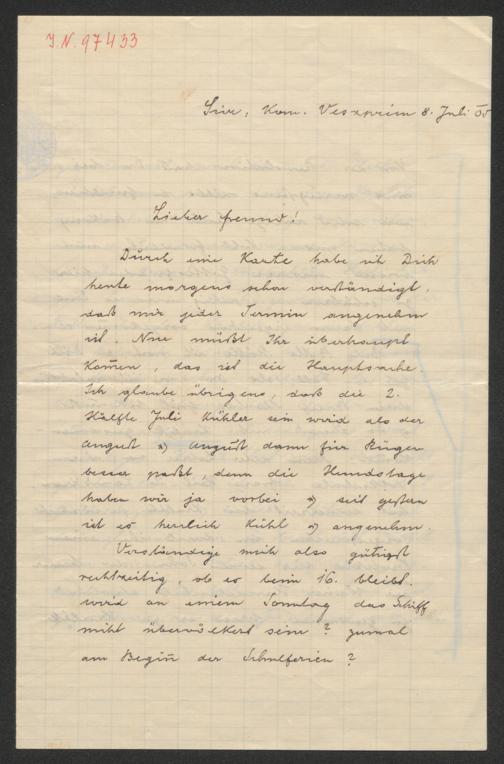 I.N. 97433
Siór, Kom. Veszprim 8. Juli 05
Lieber Freund!
Durch eine Karte habe ich Dich
heute morgens schon verständigt,
daß mir jeder Termin angenehm
ist. Nur müßt Ihr überhaupt
kom̄en, das ist die Hauptsache
Ich glaube übrigens, daß die 2.
Hälfte Juli kühler sein wird als der
August u) August dann für Rügen
besser paßt, denn die Hundstage
haben wir ja vorbei u) seit gestern
ist es herrlich kühl u) angenehm.
Verständige mich also gütigst
rechtzeitig, ob es beim 16. bleibt.
wird an einem Sonntag das Schiff
nicht übervölkert sein? zumal
am Begin̄ der Schulferien?